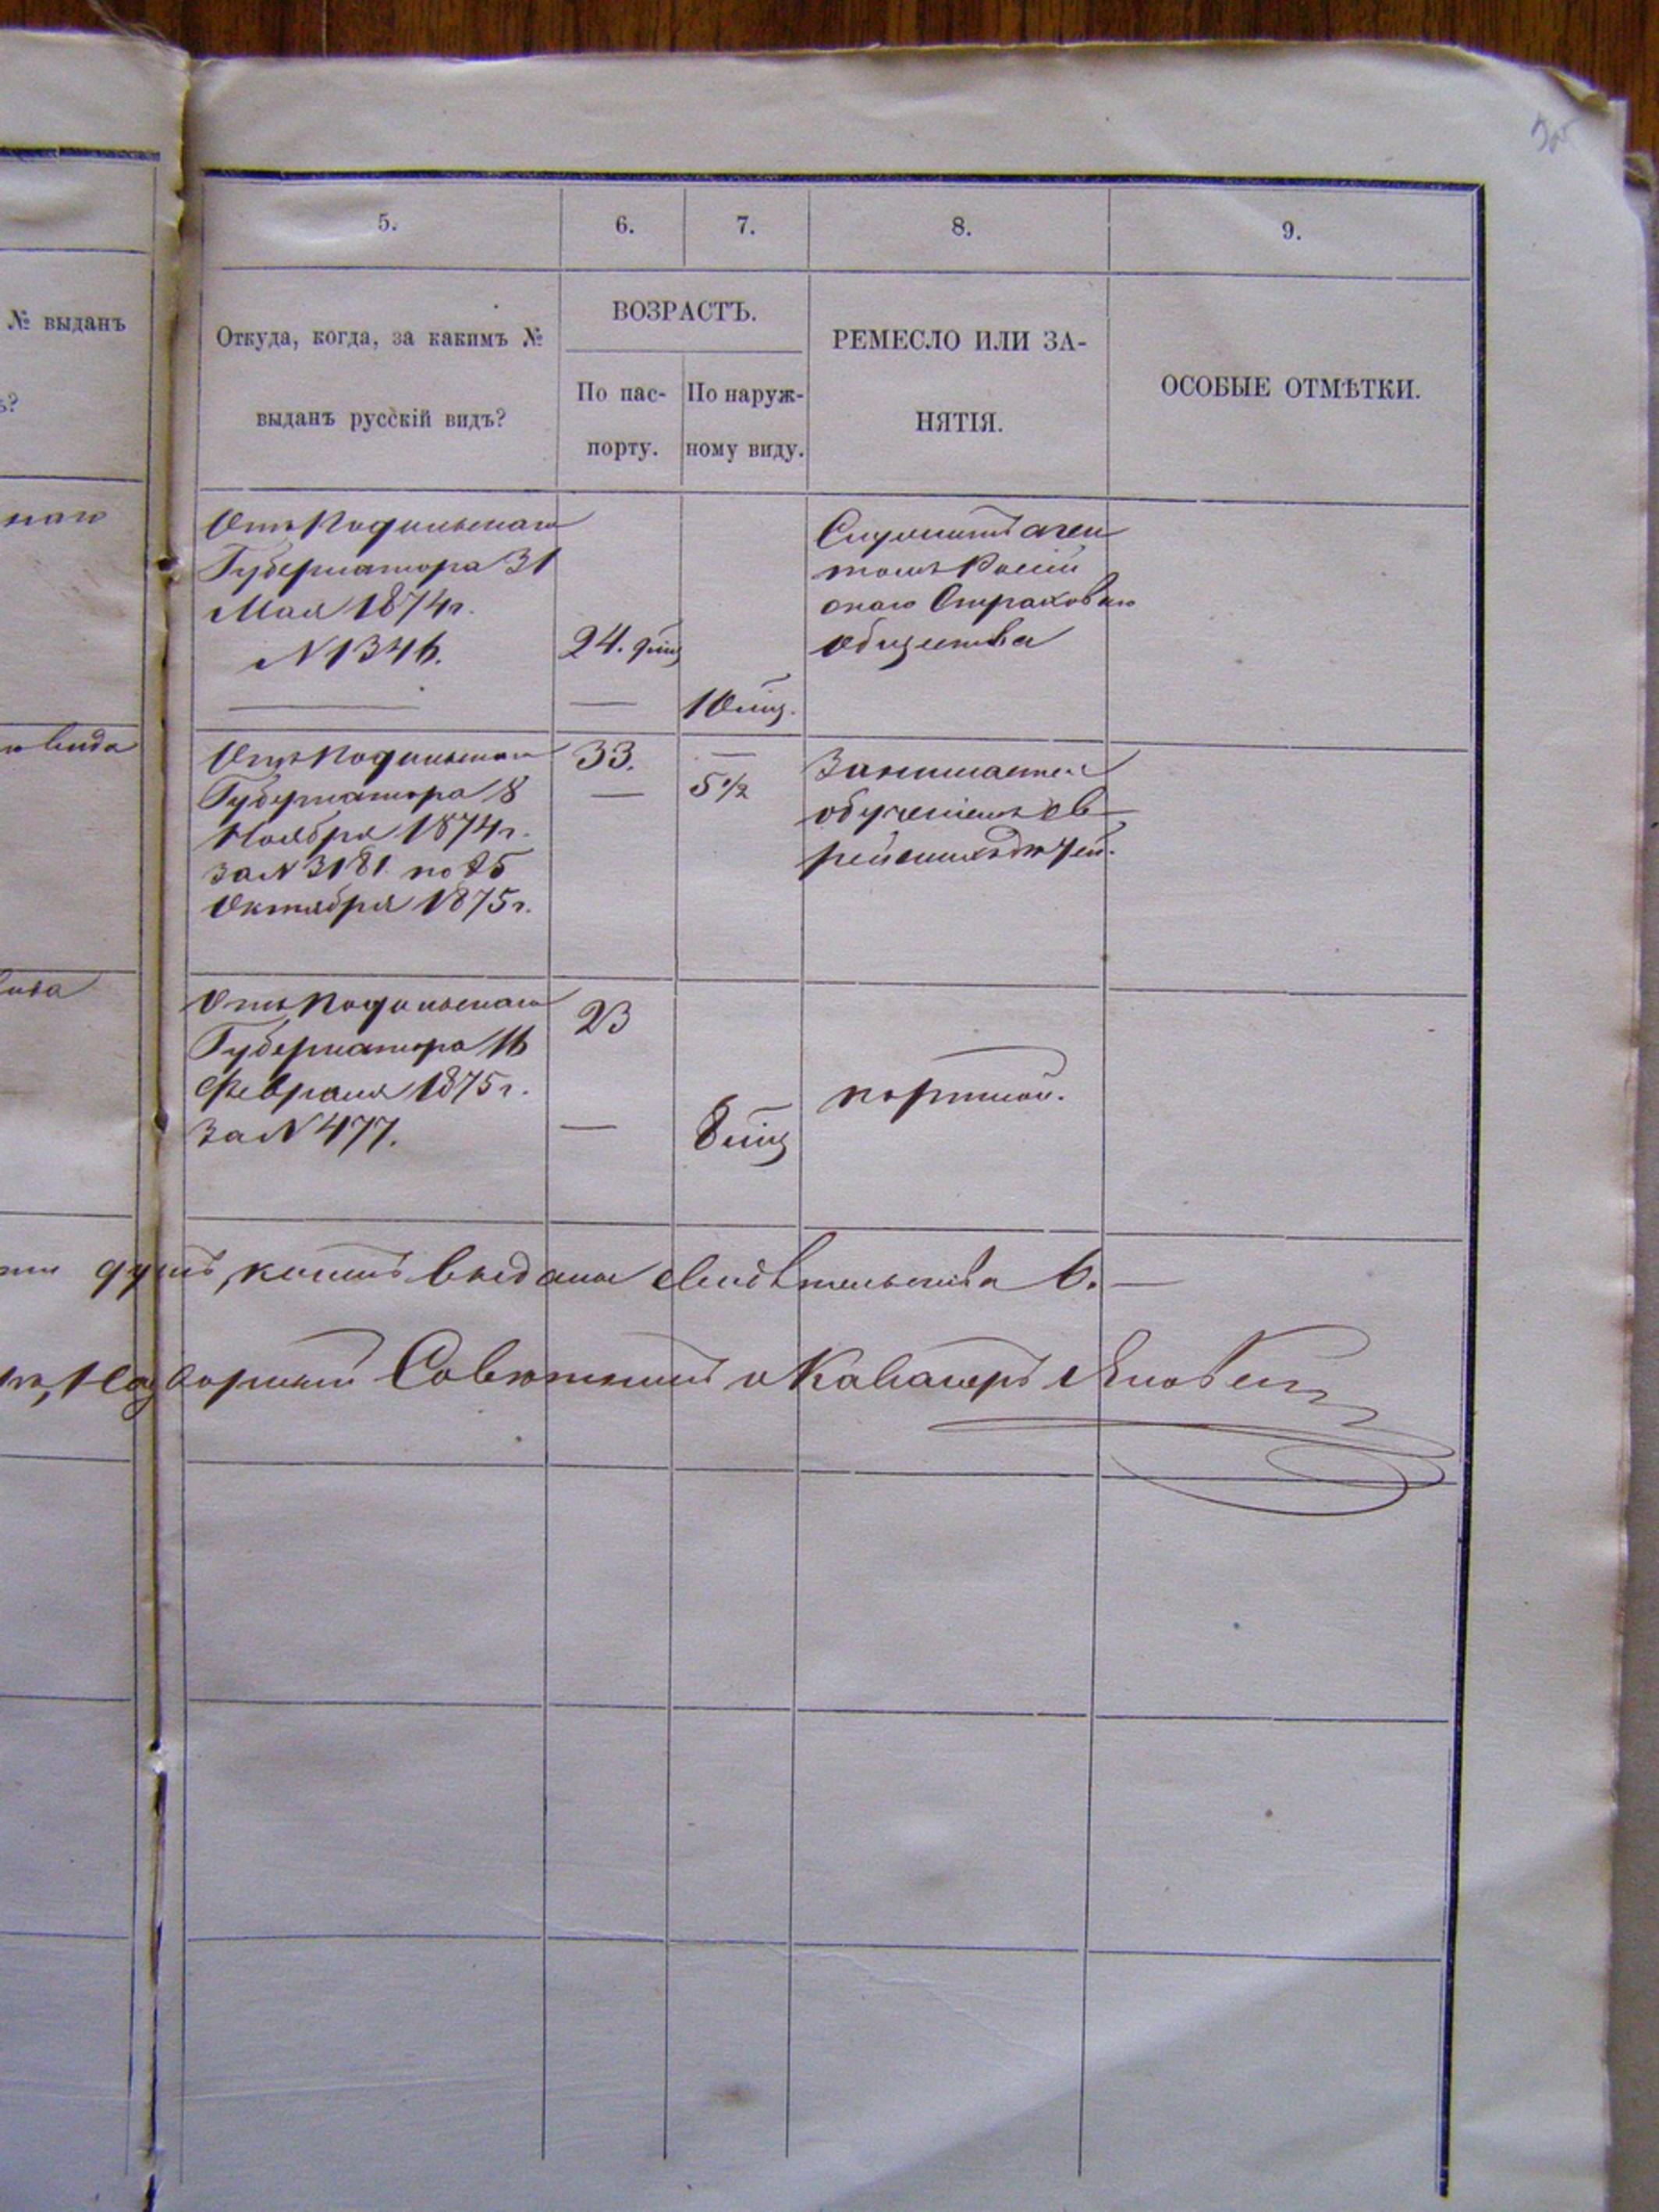 5.
6.
7.
8.
9.
№ выданъ
ъ?
Откуда, когда, за какимъ №
выданъ русскій видъ?
ВОЗРАСТЪ.
По пас-
порту.
По наруж-
ному виду.
РЕМЕСЛО ИЛИ ЗА-
НЯТІЯ.
ОСОБЫЕ ОТМѢТКИ.
Отъ Подольскаго
Губернатора 31
Мая 1874 г.
N 1346.
24.
Служитъ аген
томъ Россій
скаго Страховаго
общества
вида
Отъ Подольскаго
Губернатора 8
Ноября 1874 г.
за N 3181 по 25
Октября 1875 г.
33.
—
—
5 1/2
Занимается
обученіемъ ев
рейскихъ дѣтей.
вида
Отъ Подольскаго
Губернатора 16
Февраля 1875 г.
За N 477.
23
—
8
портной.
душъ, коимъ выданы свидѣтельства 6. —
Надворный Совѣтникъ и Кавалеръ